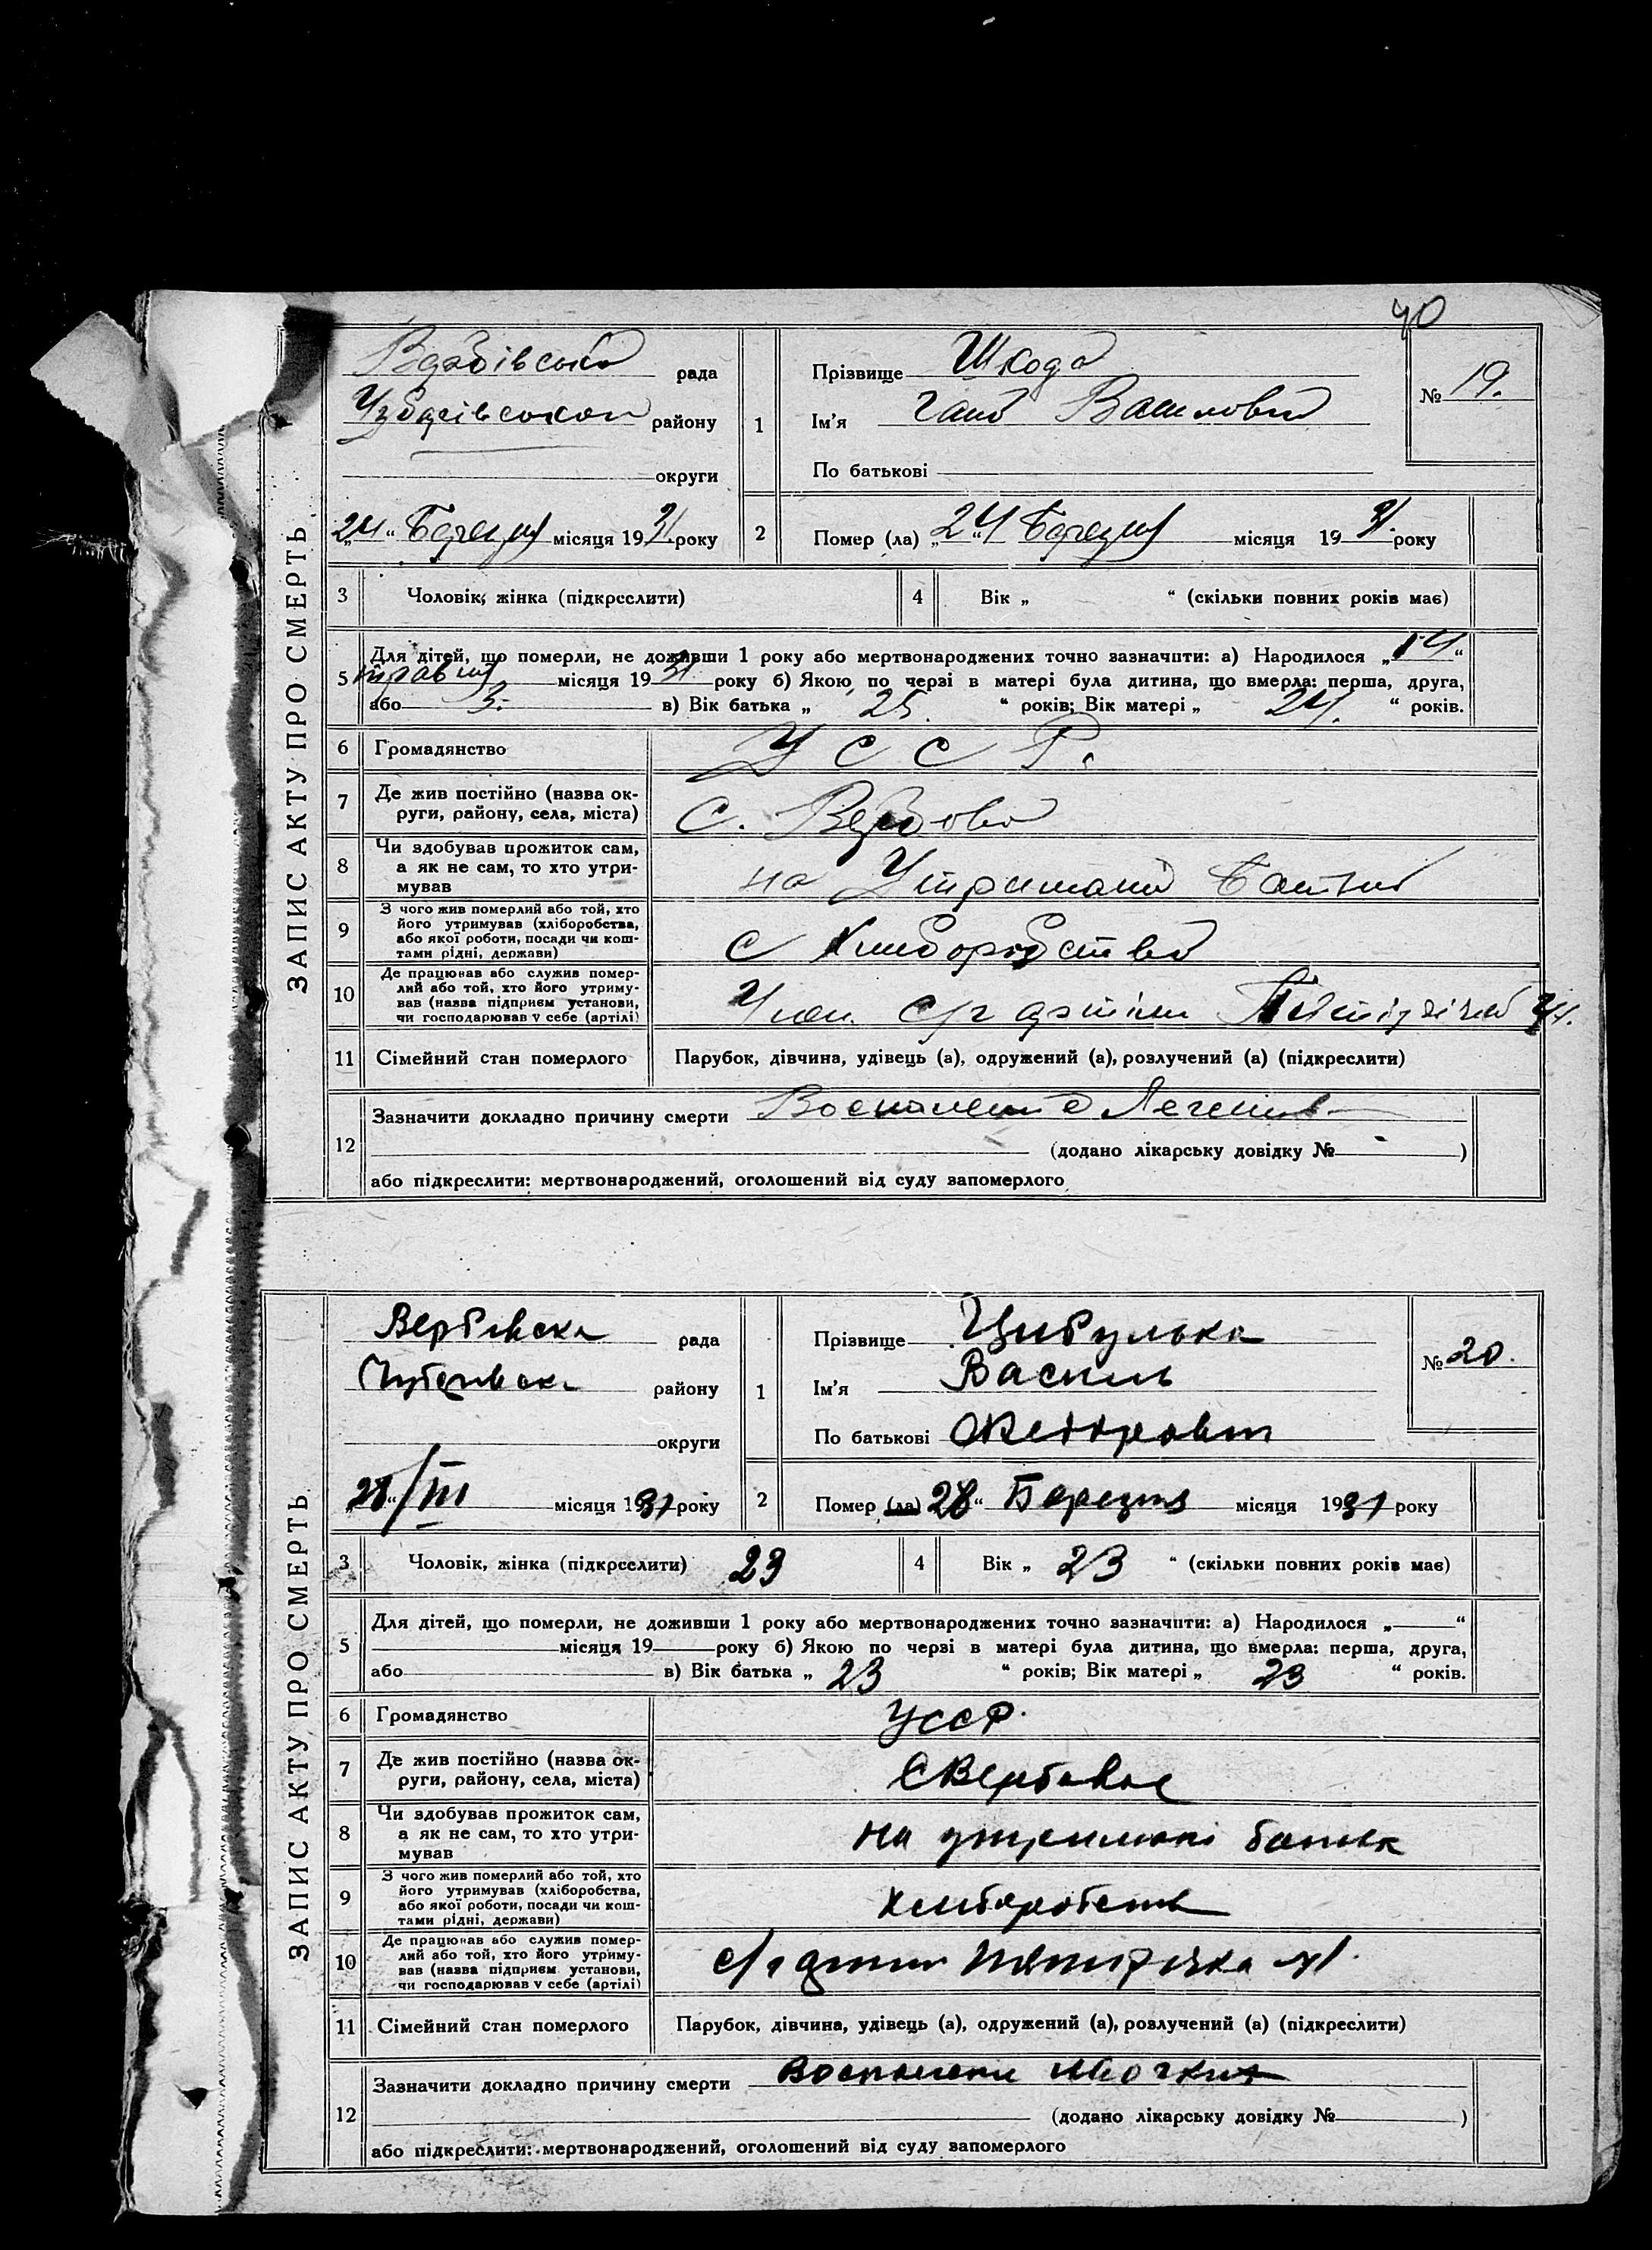 40
ЗАПИС АКТУ ПРО СМЕРТЬ
Вербівська рада
Чубарівського району
округи
"24" Березня місяця 1931 року
1 Прізвище Шкода
Ім'я Василович
По батькові
№ 19.
2 Помер (ла) "24" Березня місяця 1931. року
3 Чоловік, жінка (підкреслити)
4 Вік „ “ (скільки повних років має)
5 Для дітей, що померли, не доживши 1 року або мертвонароджених точно зазначити: а) Народилося „14“
травня місяця 1931 року б) Якою по черзі в матері була дитина, що вмерла: перша, друга,
або 3. в) Вік батька „ 25. “ років; Вік матері „ 24. “ років.
6 Громадянство У С С Р.
7 Де жив постійно (назва ок-
руги, району, села, міста) с. Вербове
8 Чи здобував прожиток сам,
а як не сам, то хто утри-
мував на Утримані
9 З чого жив померлий або той, хто
його утримував (хліборобства,
або якої роботи, посади чи кош-
тами рідні, держави) с Хлиборобства
10 Де працював або служив помер-
лий або той, хто його утриму-
вав (назва підприєм установи,
чи господарював у себе (артілі) Член с/г артіли
11 Сімейний стан померлого Парубок, дівчина, удівець (а), одружений (а), розлучений (а) (підкреслити)
12 Зазначити докладно причину смерти Воспаление Легених
(додано лікарську довідку № - )
або підкреслити: мертвонароджений, оголошений від суду запомерлого
ЗАПИС АКТУ ПРО СМЕРТЬ
Вербівска рада
Чубарівска району
округи
"28"/III місяця 1931 року
1 Прізвище Цибулька
Ім'я Василь
По батькові
№ 20.
2 Помер (ла) 28“ Березня місяця 1931 року
3 Чоловік, жінка (підкреслити) 23
4 Вік „ 23 “ (скільки повних років має)
5 Для дітей, що померли, не доживши 1 року або мертвонароджених точно зазначити: а) Народилося „ “
місяця 19 року б) Якою по черзі в матері була дитина, що вмерла: перша, друга,
або в) Вік батька „ 23 “ років; Вік матері „ 23 “ років.
6 Громадянство УССР.
7 Де жив постійно (назва ок-
руги, району, села, міста) С Вербовае
8 Чи здобував прожиток сам,
а як не сам, то хто утри-
мував на утримані батька
9 З чого жив померлий або той, хто
його утримував (хліборобства,
або якої роботи, посади чи кош-
тами рідні, держави) хлиборобства
10 Де працював або служив помер-
лий або той, хто його утриму-
вав (назва підприєм установи,
чи господарював у себе (артілі) с/г артил Пятирічка
11 Сімейний стан померлого Парубок, дівчина, удівець (а), одружений (а), розлучений (а) (підкреслити)
12 Зазначити докладно причину смерти Воспалени
(додано лікарську довідку № )
або підкреслити: мертвонароджений, оголошений від суду запомерлого